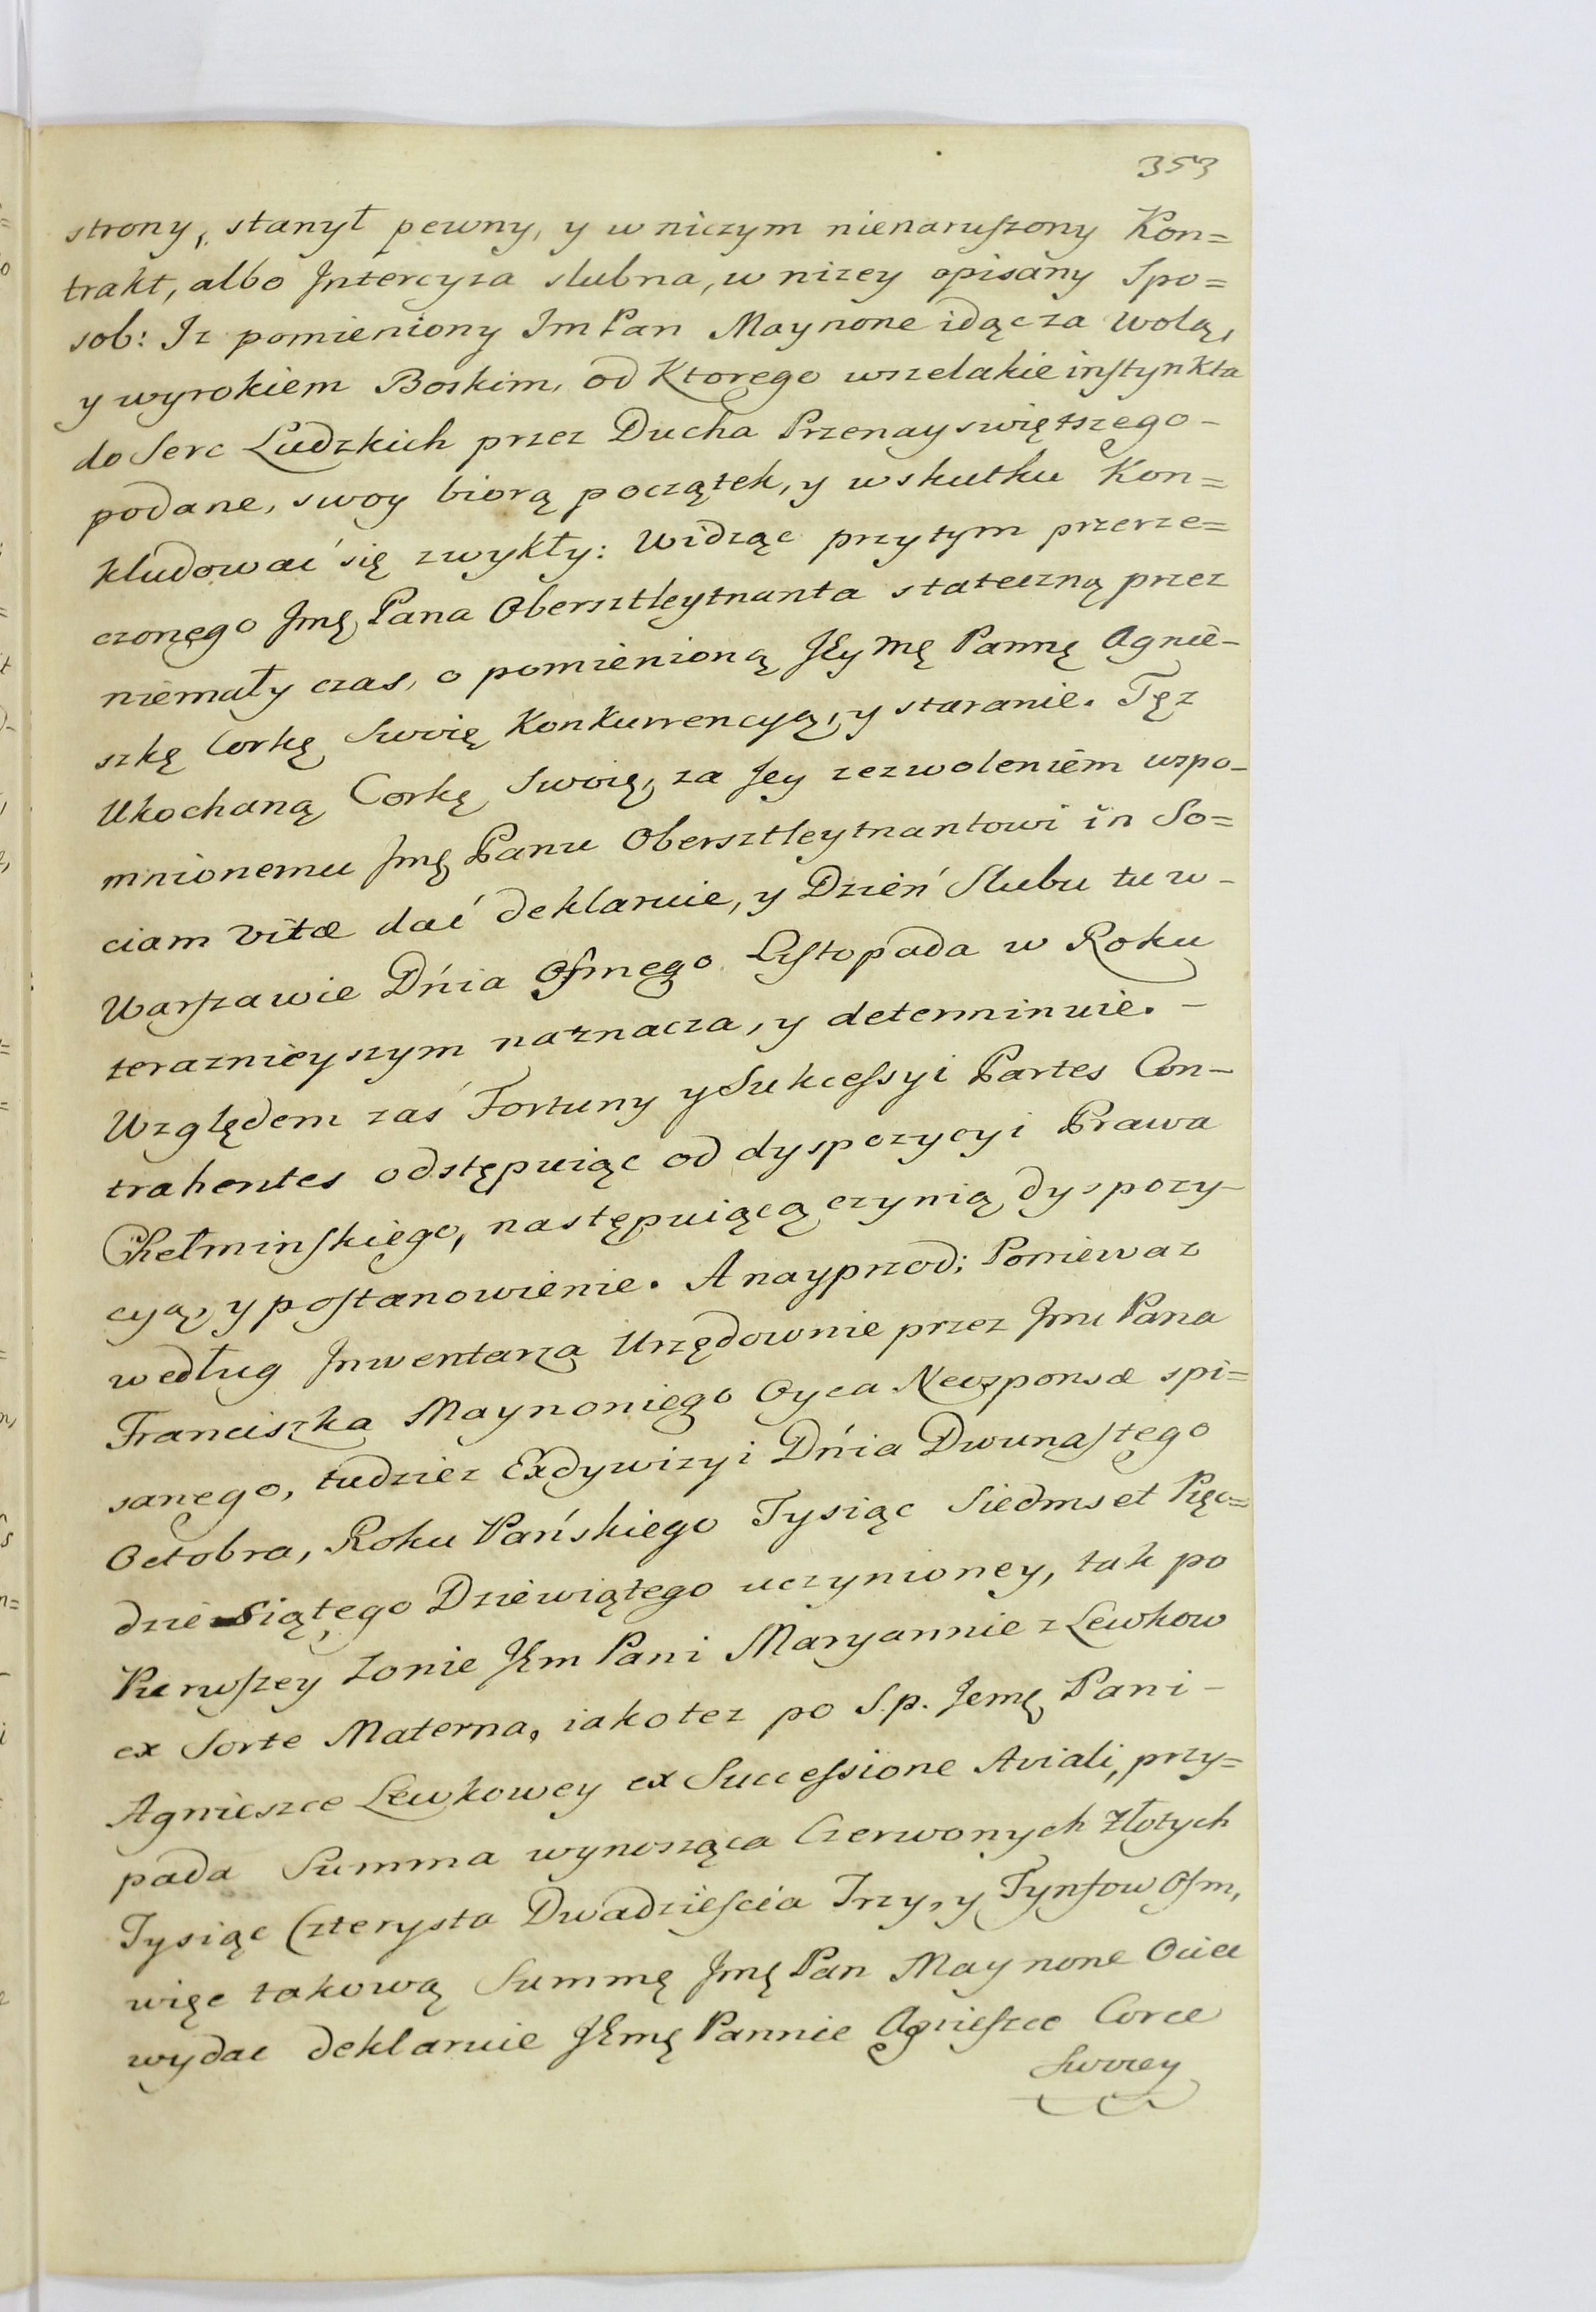 353
strony, stanył pewny, y w niczym nienaruszony Kon=
trakt, albo Jntercyza slubna, w nizey opisany Spo=
sob: Jz pomieniony Jm Pan Maynone idąc za wolą,
y wyrokiem Boskim, od Ktorego wszelakie instynkta
do Serc Ludzkich przez Ducha Przenayswiętszego-
podane, swoy biorą początek, y w skutku Kon=
kludować się zwykły: Widząc przytym przerze=
czonego Jmę Pana Obersztleytnanta stateczną przez
niemały czas, o pomienioną JEymę Pannę Agnie-
szkę Corkę Swoię Konkurrencyą, y staranie. Tęz
Ukochaną Corkę Swoię, za Jey zezwoleniem wspo-
mnionemu Jmę Panu Obersztleytnantowi in So=
ciam vitæ dać deklaruie, y Dzień Slubu tu w-
Warszawie Dńia Osmego Listopada w Roku
teraznieyszym naznacza, y determinuie.-
Względem zaś Fortuny y Sukcessyi Partes Con-
trahentes odstępuiąc od dyspozycyi Prawa
Chełminskiego, następuiącą czynią dyspozy-
cyą, y postanowienie. A nayprzod; Poniewaz
według Jnwentarza Urzędownie przez Jmć Pana
Franciszka Maynoniego Oyca Neosponsæ spi=
sanego, tudziez Exdywizyi Dńia Dwunastego
Octobra, Roku Pańskiego Tysiąc Siedmset Pięc=
dziesiątego Dziewiątego uczynioney, tak po
Pierwszey Zonie JEm Pani Maryannie z Lewkow
ex Sorte Materna, iako tez po S.p. Jemę Pani-
Agnieszce Lewkowey ex Successione Aviali, przy=
pada Summa wynosząca Czerwonych Złotych
Tysiąc Czterysta Dwadziescia Trzy, y Tynfow Osm,
więc takową Summę Jmę Pan Maynone Ociec
wydac deklaruie JEmę Pannie Agnieszce Corce
Swoiey